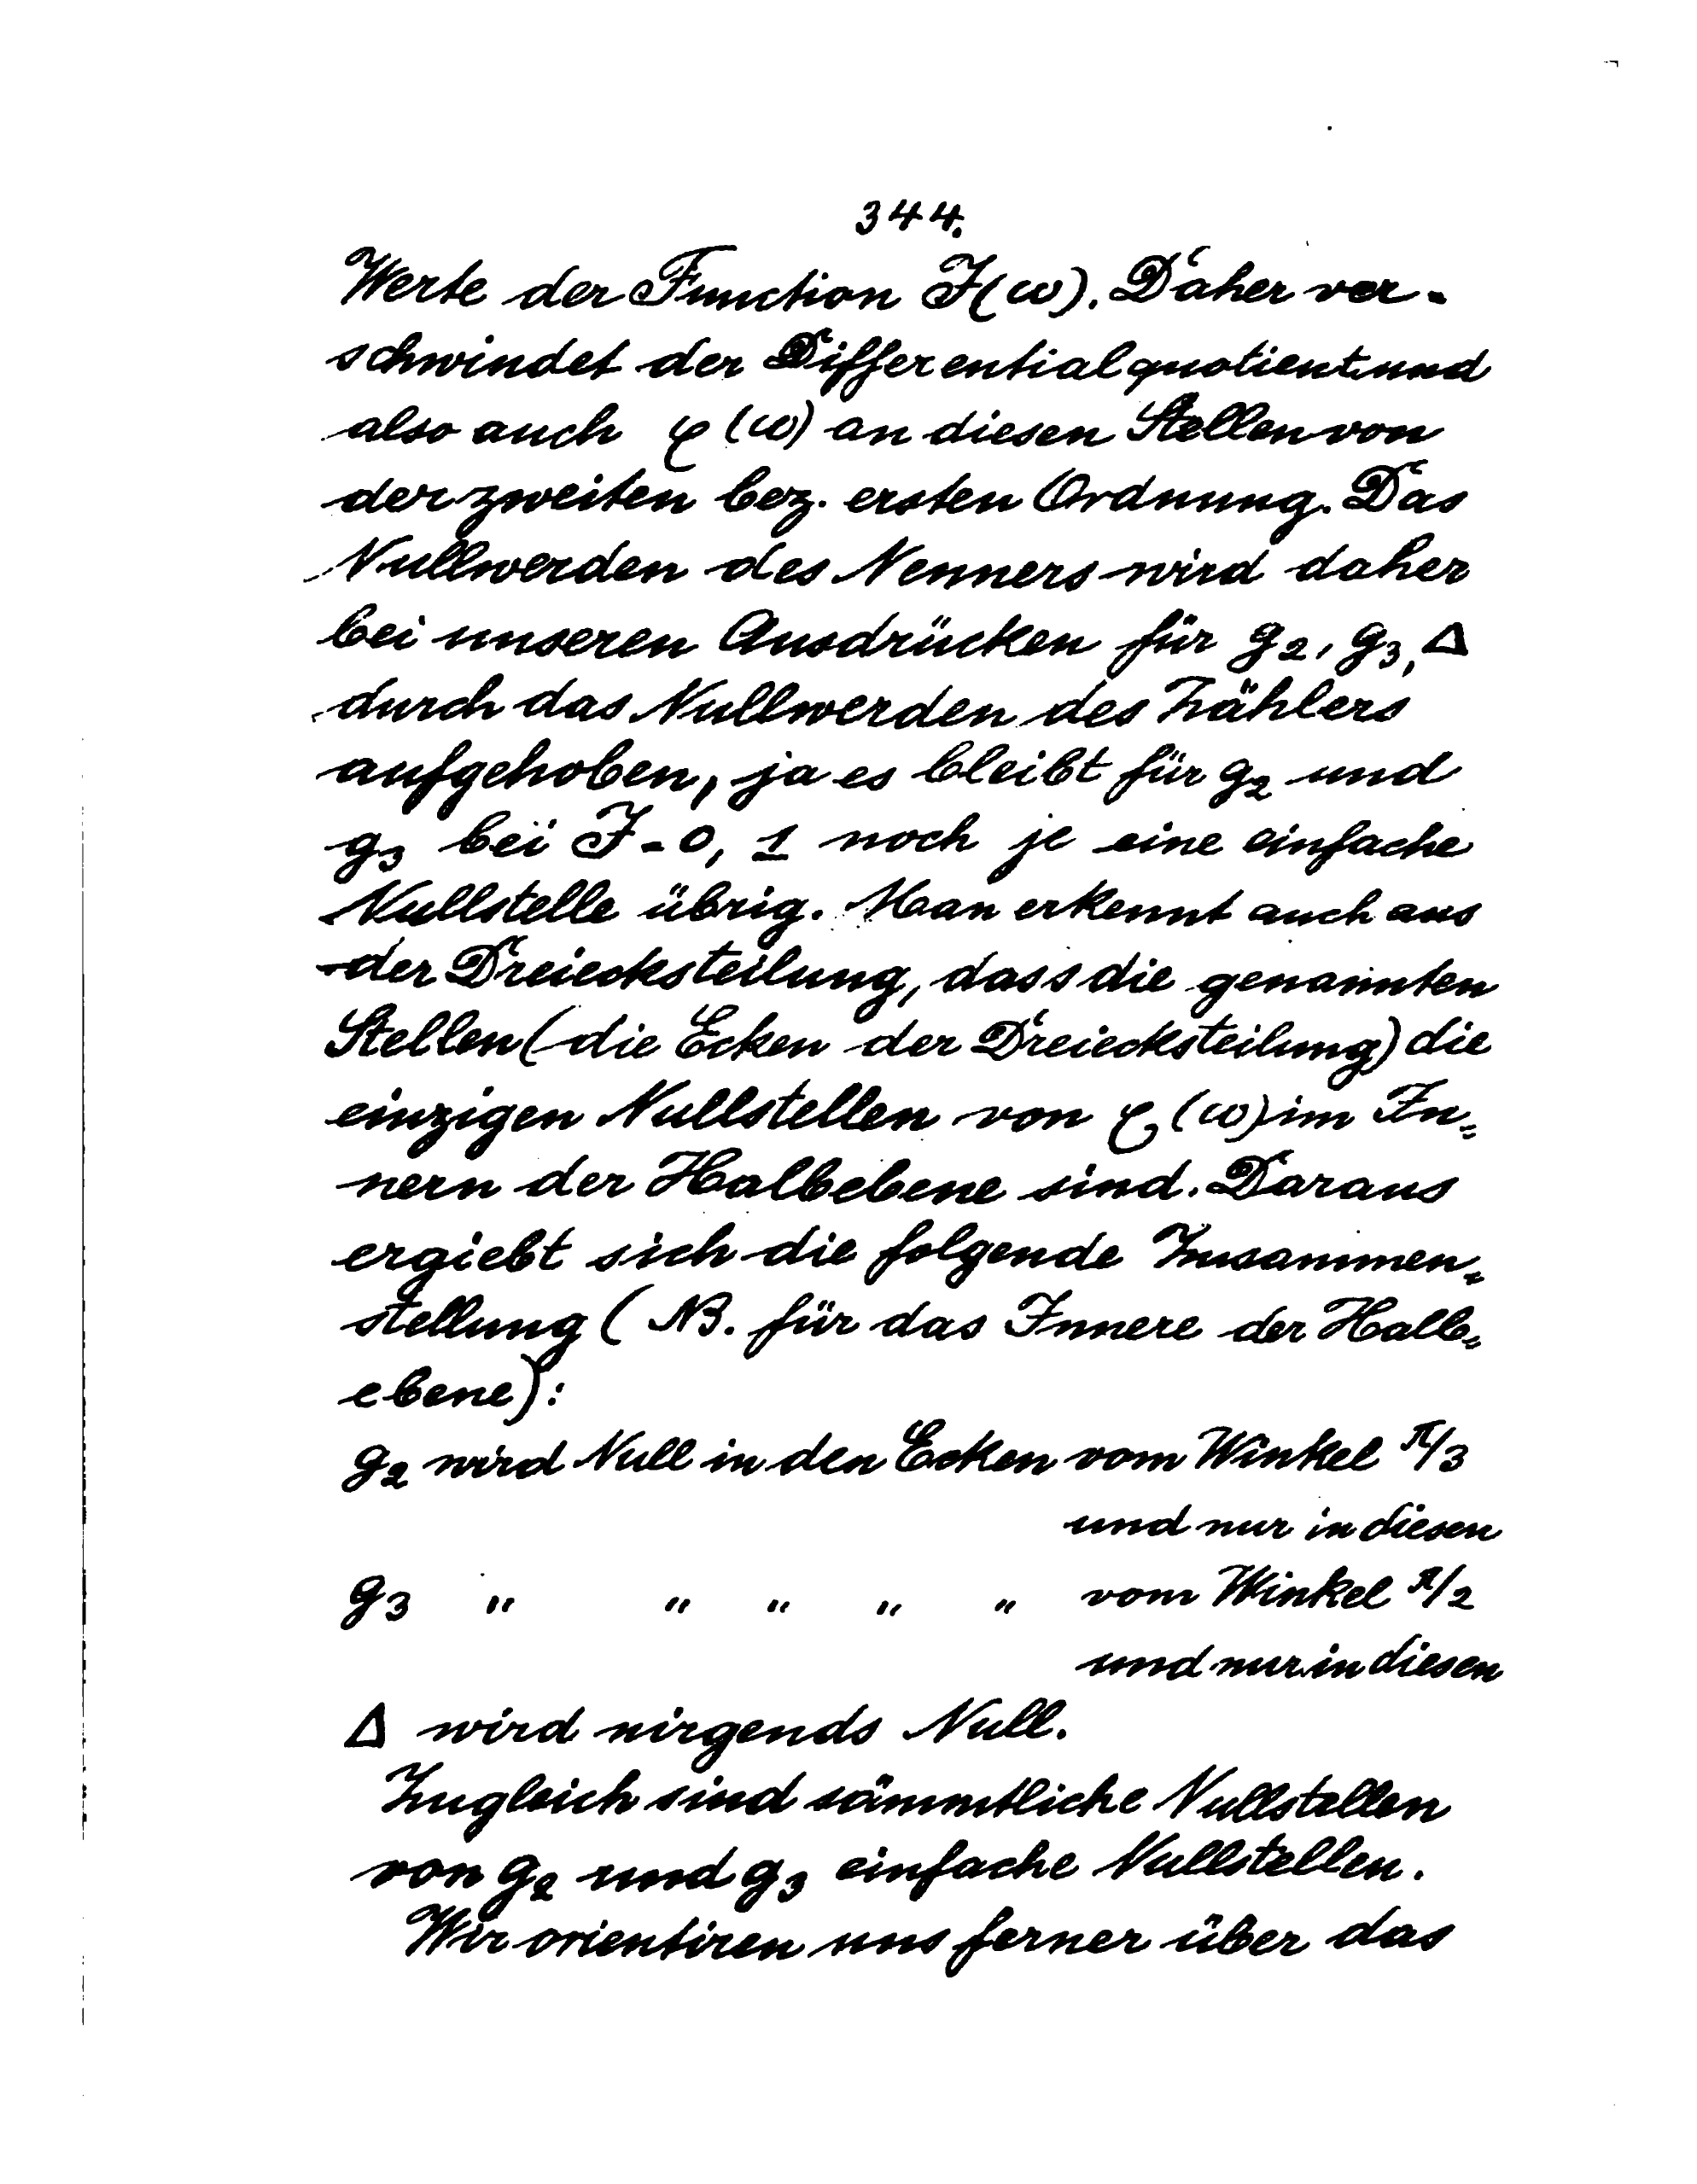 344.
Werte der Function J(ω). Daher ver-
schwindet der Differentialquotient und
also auch φ(ω) an diesen Stellen von
der zweiten bez. ersten Ordnung. Das
Nullwerden des Nenners wird daher
bei unseren Ausdrücken für g₂, g₃, Δ
durch das Nullwerden des Zählers
aufgehoben, ja es bleibt für g₂ und
g₃ bei J = 0, 1 noch je eine einfache
Nullstelle übrig. Man erkennt auch aus
der Dreiecksteilung, dass die genannten
Stellen (die Ecken der Dreiecksteilung) die
einzigen Nullstellen von φ(ω) im In=
nern der Halbebene sind. Daraus
ergiebt sich die folgende Zusammen=
stellung (NB. für das Innere der Halb=
ebene):
g₂ wird Null in den Ecken vom Winkel π/3
und nur in diesen
g₃ " " " " " vom Winkel π/2
und nur in diesen
Δ wird nirgends Null.
Zugleich sind sämmtliche Nullstellen
von g₂ und g₃ einfache Nullstellen.
Wir orientiren uns ferner über das